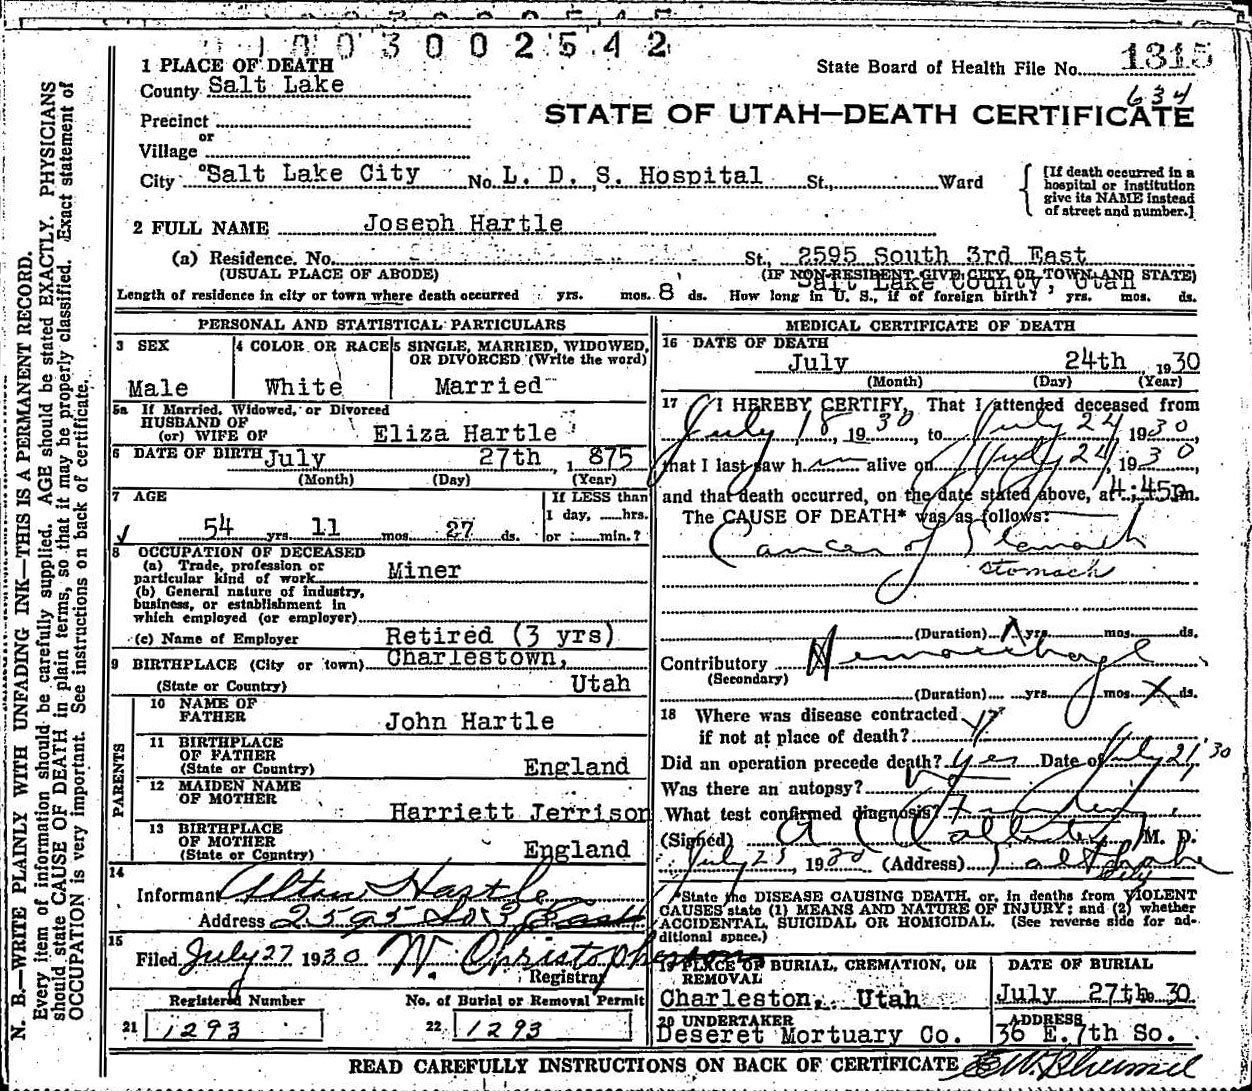 0 1 0 0 3 0 0 2 5 4 2
1315
634
1 PLACE OF DEATH
State Board of Health File No.
County Salt Lake
STATE OF UTAH—DEATH CERTIFICATE
Precinct
or
Village
City Salt Lake City No. L. D. S. Hospital St., Ward
[If death occurred in a hospital or institution give its NAME instead of street and number.]
2 FULL NAME Joseph Hartle
(a) Residence. No. St., 2595 South 3rd East
(USUAL PLACE OF ABODE) (IF NON-RESIDENT GIVE CITY OR TOWN AND STATE)
Salt Lake County, Utah
Length of residence in city or town where death occurred yrs. mos. 8 ds. How long in U. S., if of foreign birth? yrs. mos. ds.
PERSONAL AND STATISTICAL PARTICULARS
3 SEX
Male
4 COLOR OR RACE
White
5 SINGLE, MARRIED, WIDOWED, OR DIVORCED (Write the word)
Married
5a If Married, Widowed, or Divorced
HUSBAND OF
(or) WIFE OF Eliza Hartle
6 DATE OF BIRTH July 27th, 1875
(Month) (Day) (Year)
7 AGE
54 yrs. 11 mos. 27 ds.
If LESS than
1 day, hrs.
or min.?
8 OCCUPATION OF DECEASED
(a) Trade, profession or
particular kind of work Miner
(b) General nature of industry,
business, or establishment in
which employed (or employer)
(c) Name of Employer Retired (3 yrs)
9 BIRTHPLACE (City or town) Charlestown,
(State or Country) Utah
PARENTS
10 NAME OF FATHER John Hartle
11 BIRTHPLACE OF FATHER (State or Country) England
12 MAIDEN NAME OF MOTHER Harriett Jerrison
13 BIRTHPLACE OF MOTHER (State or Country) England
14
Informant Alton Hartle
Address 2595 So 3 East
15
Filed July 27 1930 W. Christopherson
Registrar
Registered Number
21 1293
No. of Burial or Removal Permit
22 1293
MEDICAL CERTIFICATE OF DEATH
16 DATE OF DEATH
July 24th, 1930
(Month) (Day) (Year)
17 I HEREBY CERTIFY, That I attended deceased from
July 18, 1930, to July 24, 1930,
that I last saw h im alive on July 24, 1930
and that death occurred, on the date stated above, at 4:45p.m.
The CAUSE OF DEATH* was as follows:
Cancer of Stomach
stomach
(Duration) yrs. mos. ds.
Contributory Hemorrhage
(Secondary)
(Duration) yrs. mos. X ds.
18 Where was disease contracted
if not at place of death?
Did an operation precede death? Yes Date of July 21, 30
Was there an autopsy?
What test confirmed diagnosis?
(Signed) M. D.
July 25, 1930 (Address) Salt Lake City
*State the DISEASE CAUSING DEATH, or, in deaths from VIOLENT
CAUSES state (1) MEANS AND NATURE OF INJURY; and (2) whether
ACCIDENTAL, SUICIDAL OR HOMICIDAL. (See reverse side for ad-
ditional space.)
19 PLACE OF BURIAL, CREMATION, OR REMOVAL
Charleston, Utah
DATE OF BURIAL
July 27th 30
20 UNDERTAKER
Deseret Mortuary Co.
ADDRESS
36 E. 7th So.
READ CAREFULLY INSTRUCTIONS ON BACK OF CERTIFICATE
N. B.—WRITE PLAINLY WITH UNFADING INK—THIS IS A PERMANENT RECORD.
Every item of information should be carefully supplied. AGE should be stated EXACTLY. PHYSICIANS
should state CAUSE OF DEATH in plain terms, so that it may be properly classified. Exact statement of
OCCUPATION is very important. See instructions on back of certificate.